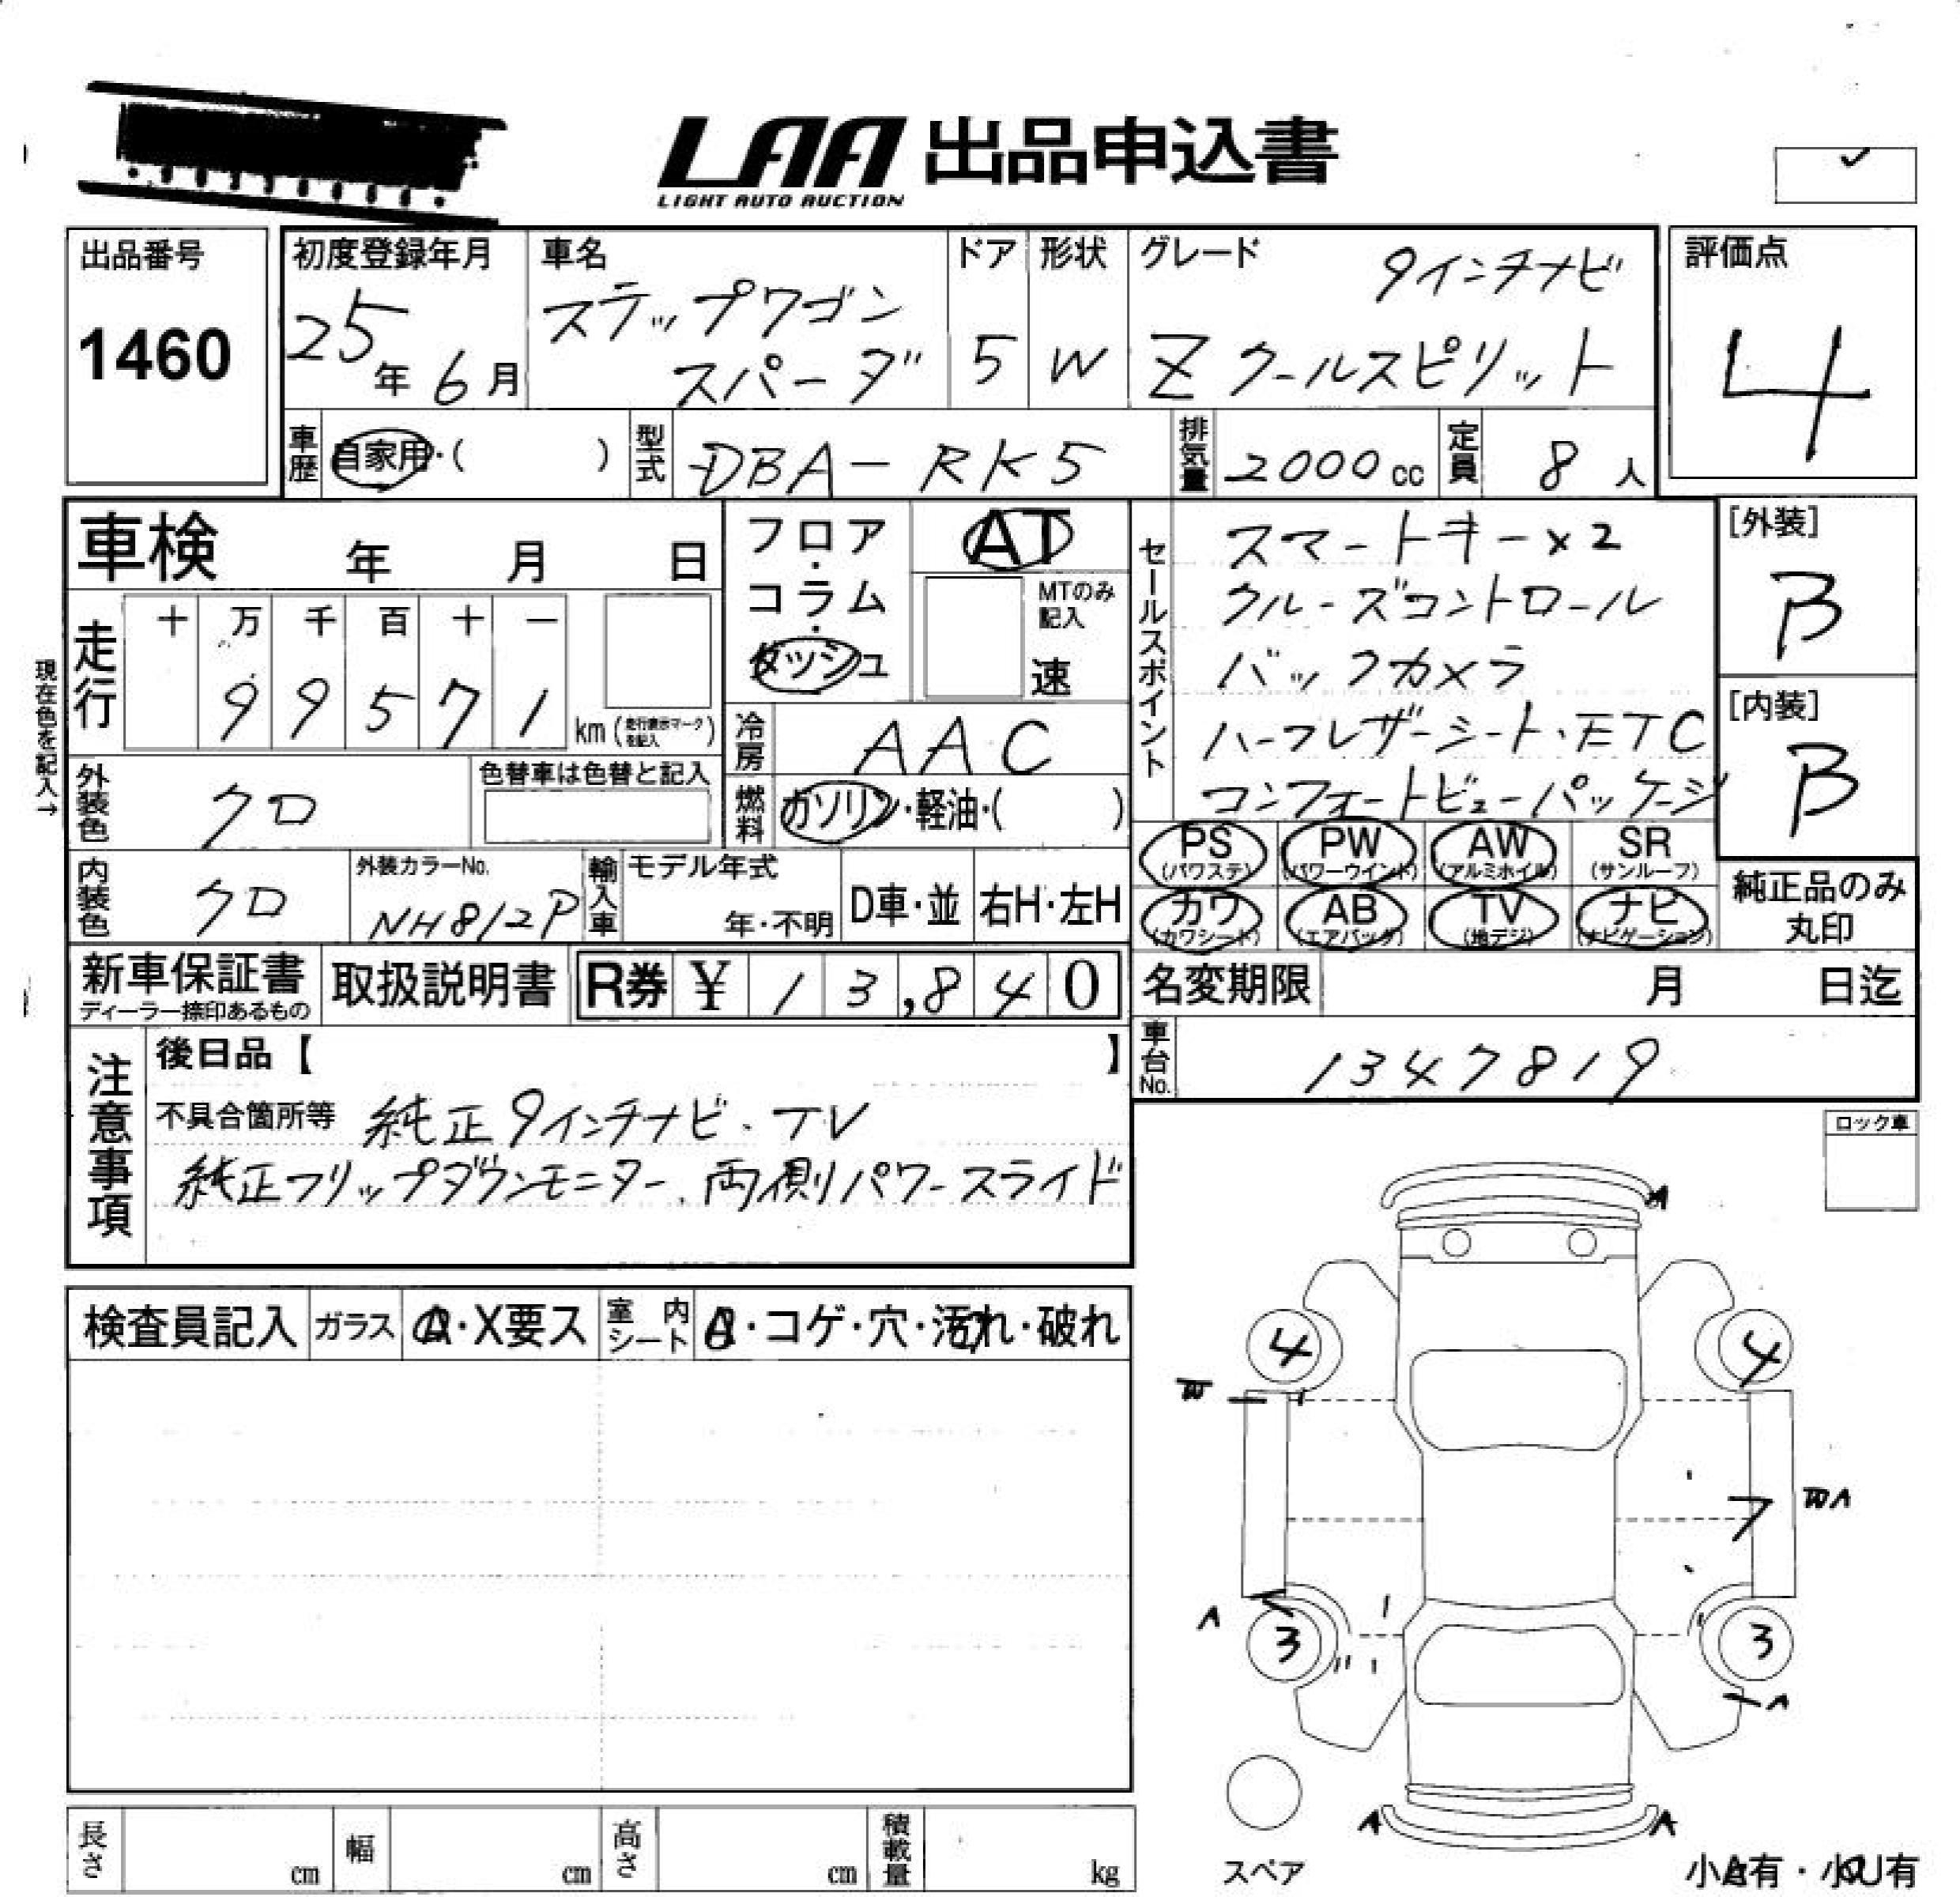 LAA 出品申込書
LIGHT AUTO AUCTION
出品番号
1460
初度登録年月
25年6月
車名
ステップワゴン
スパーダ
ドア
5
形状
W
グレード
9インチナビ
Z クールスピリット
評価点
4
車歴 自家用・( )
型式 DBA-RK5
排気量 2000cc
定員 8人
車検 年 月 日
フロア・コラム・ダッシュ
AT
MTのみ記入
速
セールスポイント
スマートキー×2
クルーズコントロール
バックカメラ
ハーフレザーシート・ETC
コンフォートビューパッケージ
[外装]
B
[内装]
B
現在色を記入→
走行
十 万 千 百 十 一
9 9 5 7 1 km (走行表示マークを記入)
冷房 AAC
外装色 クロ
色替車は色替と記入
燃料 ガソリン・軽油・( )
PS (パワステ) PW (パワーウインド) AW (アルミホイル) SR (サンルーフ)
カワ (カワシート) AB (エアバッグ) TV (地デジ) ナビ (ナビゲーション)
純正品のみ
丸印
内装色 クロ
外装カラーNo.
NH812P
輸入車
モデル年式
年・不明
D車・並
右H・左H
新車保証書
ディーラー捺印あるもの
取扱説明書
R券 ¥ 13,840
名変期限 月 日迄
車台No. 1347819
注意事項
後日品【 】
不具合箇所等 純正9インチナビ・TV
純正フリップダウンモニター、両側パワースライド
ロック車
検査員記入
ガラス
A・X要ス
室内シート
・コゲ・穴・汚れ・破れ
A
4 4
W
WA
7
A
3 3
A
A A
スペア
小A有・小U有
長さ cm
幅 cm
高さ cm
積載量 kg